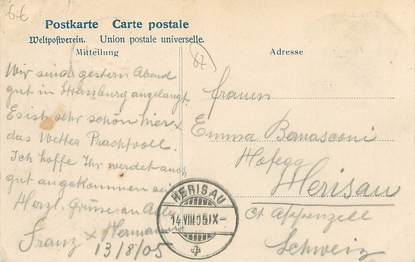 6.-€
Postkarte Carte postale
Weltpostverein. Union postale universelle.
Mitteilung
Adresse
67
Wir sind gestern Abend
gut in Strassburg angelangt.
Es ist sehr schön hier x
das Wetter Prachtvoll.
Ich hoffe Ihr werdet auch
gut angekommen sei
Herzl. Grüsse an Alle
Franz x Hermann
13/8/05
Frauen
Emma Bernasconi
Hofegg
Herisau
Ct Appenzell
Schweiz
HERISAU
14.VIII.05.IX-